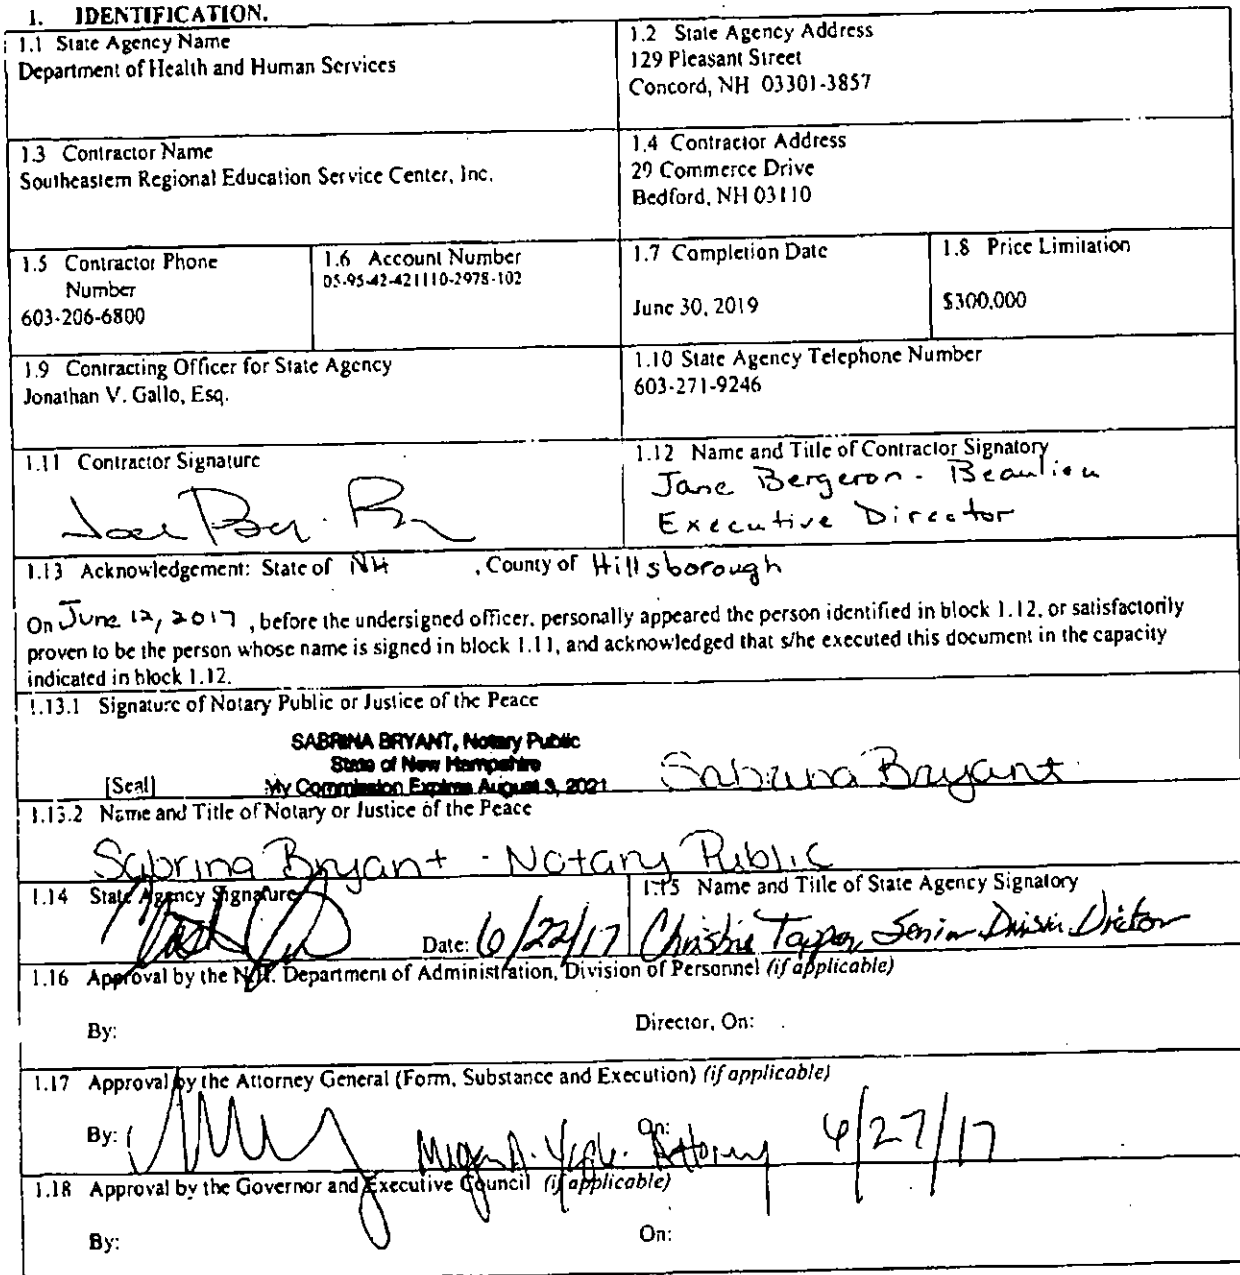 1. IDENTIFICATION.
1.1 State Agency Name
Department of Health and Human Services
1.2 State Agency Address
129 Pleasant Street
Concord, NH 03301-3857
1.3 Contractor Name
Southeastern Regional Education Service Center, Inc.
1.4 Contractor Address
29 Commerce Drive
Bedford, NH 03110
1.5 Contractor Phone
Number
603-206-6800
1.6 Account Number
05-95-42-421110-2978-102
1.7 Completion Date
June 30, 2019
1.8 Price Limitation
$300,000
1.9 Contracting Officer for State Agency
Jonathan V. Gallo, Esq.
1.10 State Agency Telephone Number
603-271-9246
1.11 Contractor Signature
1.12 Name and Title of Contractor Signatory
Jane Bergeron-Beaulieu
Executive Director
1.13 Acknowledgement: State of NH , County of Hillsborough
On June 12, 2017 , before the undersigned officer, personally appeared the person identified in block 1.12, or satisfactorily
proven to be the person whose name is signed in block 1.11, and acknowledged that s/he executed this document in the capacity
indicated in block 1.12.
1.13.1 Signature of Notary Public or Justice of the Peace
SABRINA BRYANT, Notary Public
State of New Hampshire
[Seal] My Commission Expires August 3, 2021 Sabrina Bryant
1.13.2 Name and Title of Notary or Justice of the Peace
Sabrina Bryant - Notary Public
1.14 State Agency Signature
Date: 6/22/17
1.15 Name and Title of State Agency Signatory
Christine Tappan, Senior Division Director
1.16 Approval by the N.H. Department of Administration, Division of Personnel (if applicable)
By: Director, On:
1.17 Approval by the Attorney General (Form, Substance and Execution) (if applicable)
By: On: Attorney 6/27/17
1.18 Approval by the Governor and Executive Council (if applicable)
By: On: